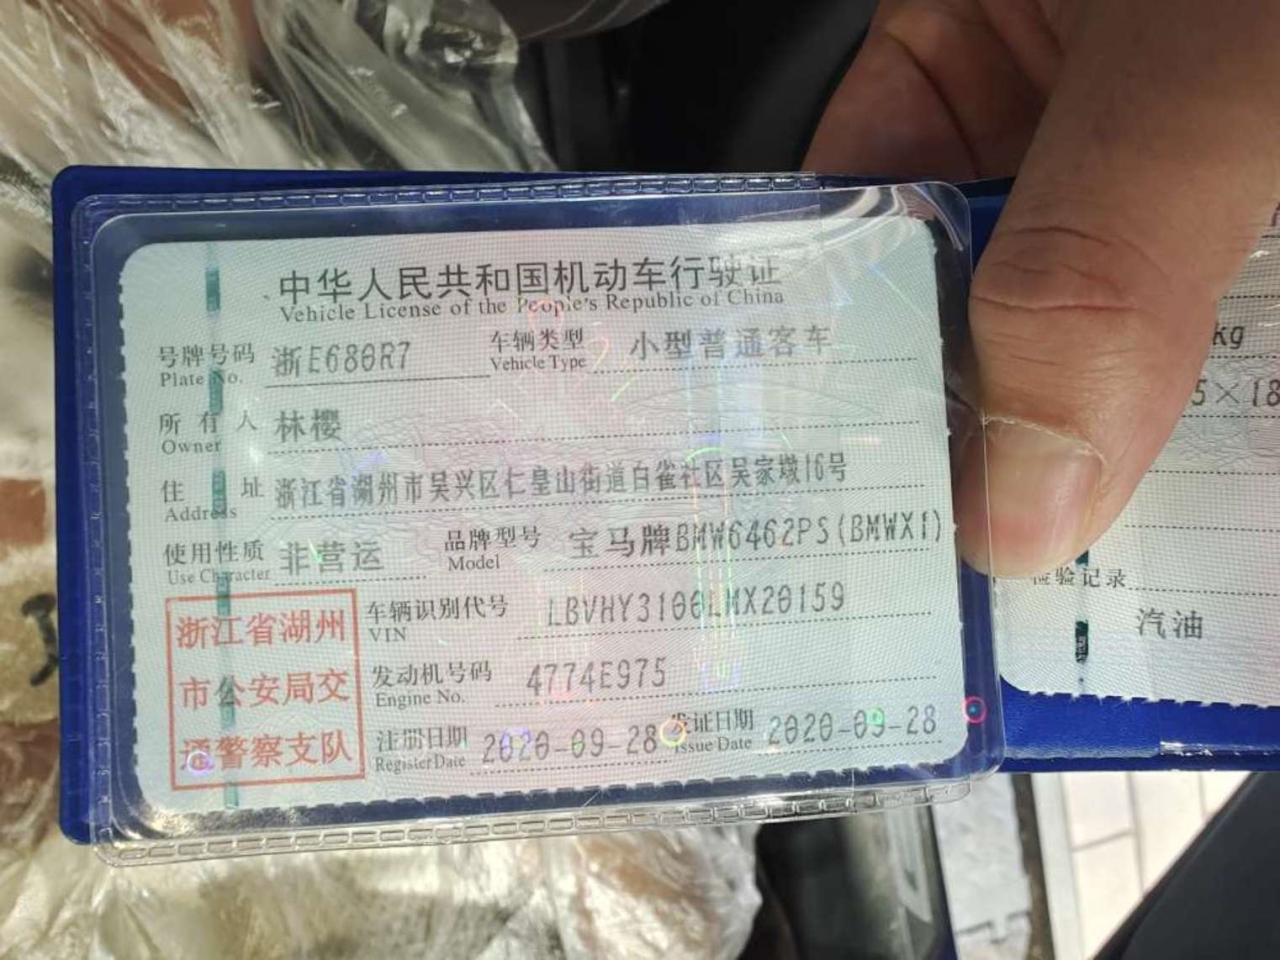 中华人民共和国机动车行驶证
Vehicle License of the People's Republic of China
号牌号码 浙E680R7 车辆类型 小型普通客车
Plate No. Vehicle Type
所有人 林樱
Owner
住址 浙江省湖州市吴兴区仁皇山街道白雀社区吴家墩16号
Address
使用性质 非营运 品牌型号 宝马牌BMW6462PS(BMWX1)
Use Character Model
浙江省湖州
市公安局交
通警察支队
车辆识别代号 LBVHY3100LMX20159
VIN
发动机号码 4774E975
Engine No.
注册日期 2020-09-28 发证日期 2020-09-28
Register Date Issue Date
kg
5×18
检验记录
汽油